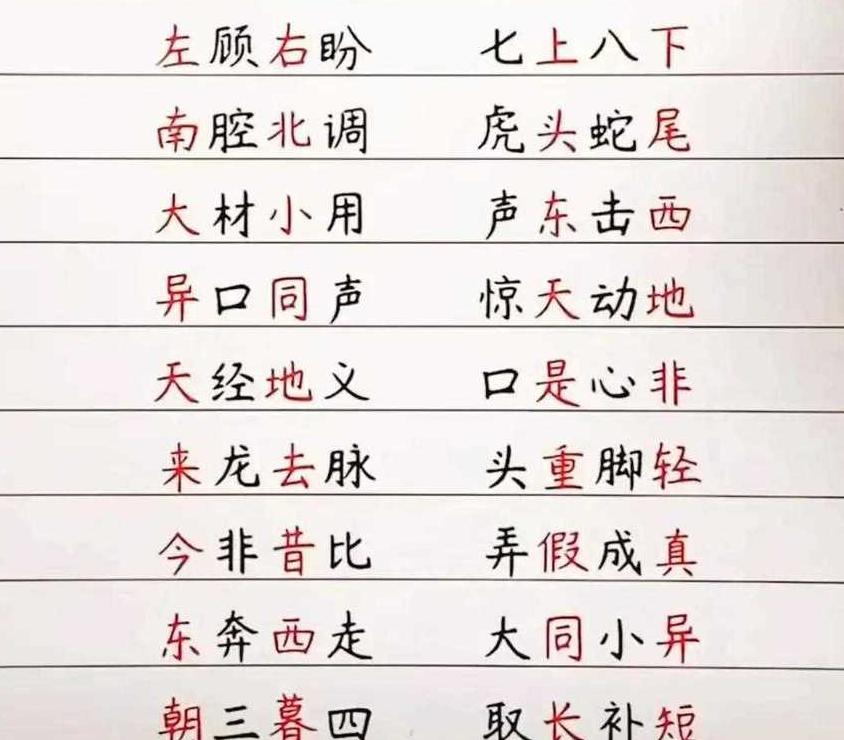 左顾右盼 七上八下
南腔北调 虎头蛇尾
大材小用 声东击西
异口同声 惊天动地
天经地义 口是心非
来龙去脉 头重脚轻
今非昔比 弄假成真
东奔西走 大同小异
朝三暮四 取长补短